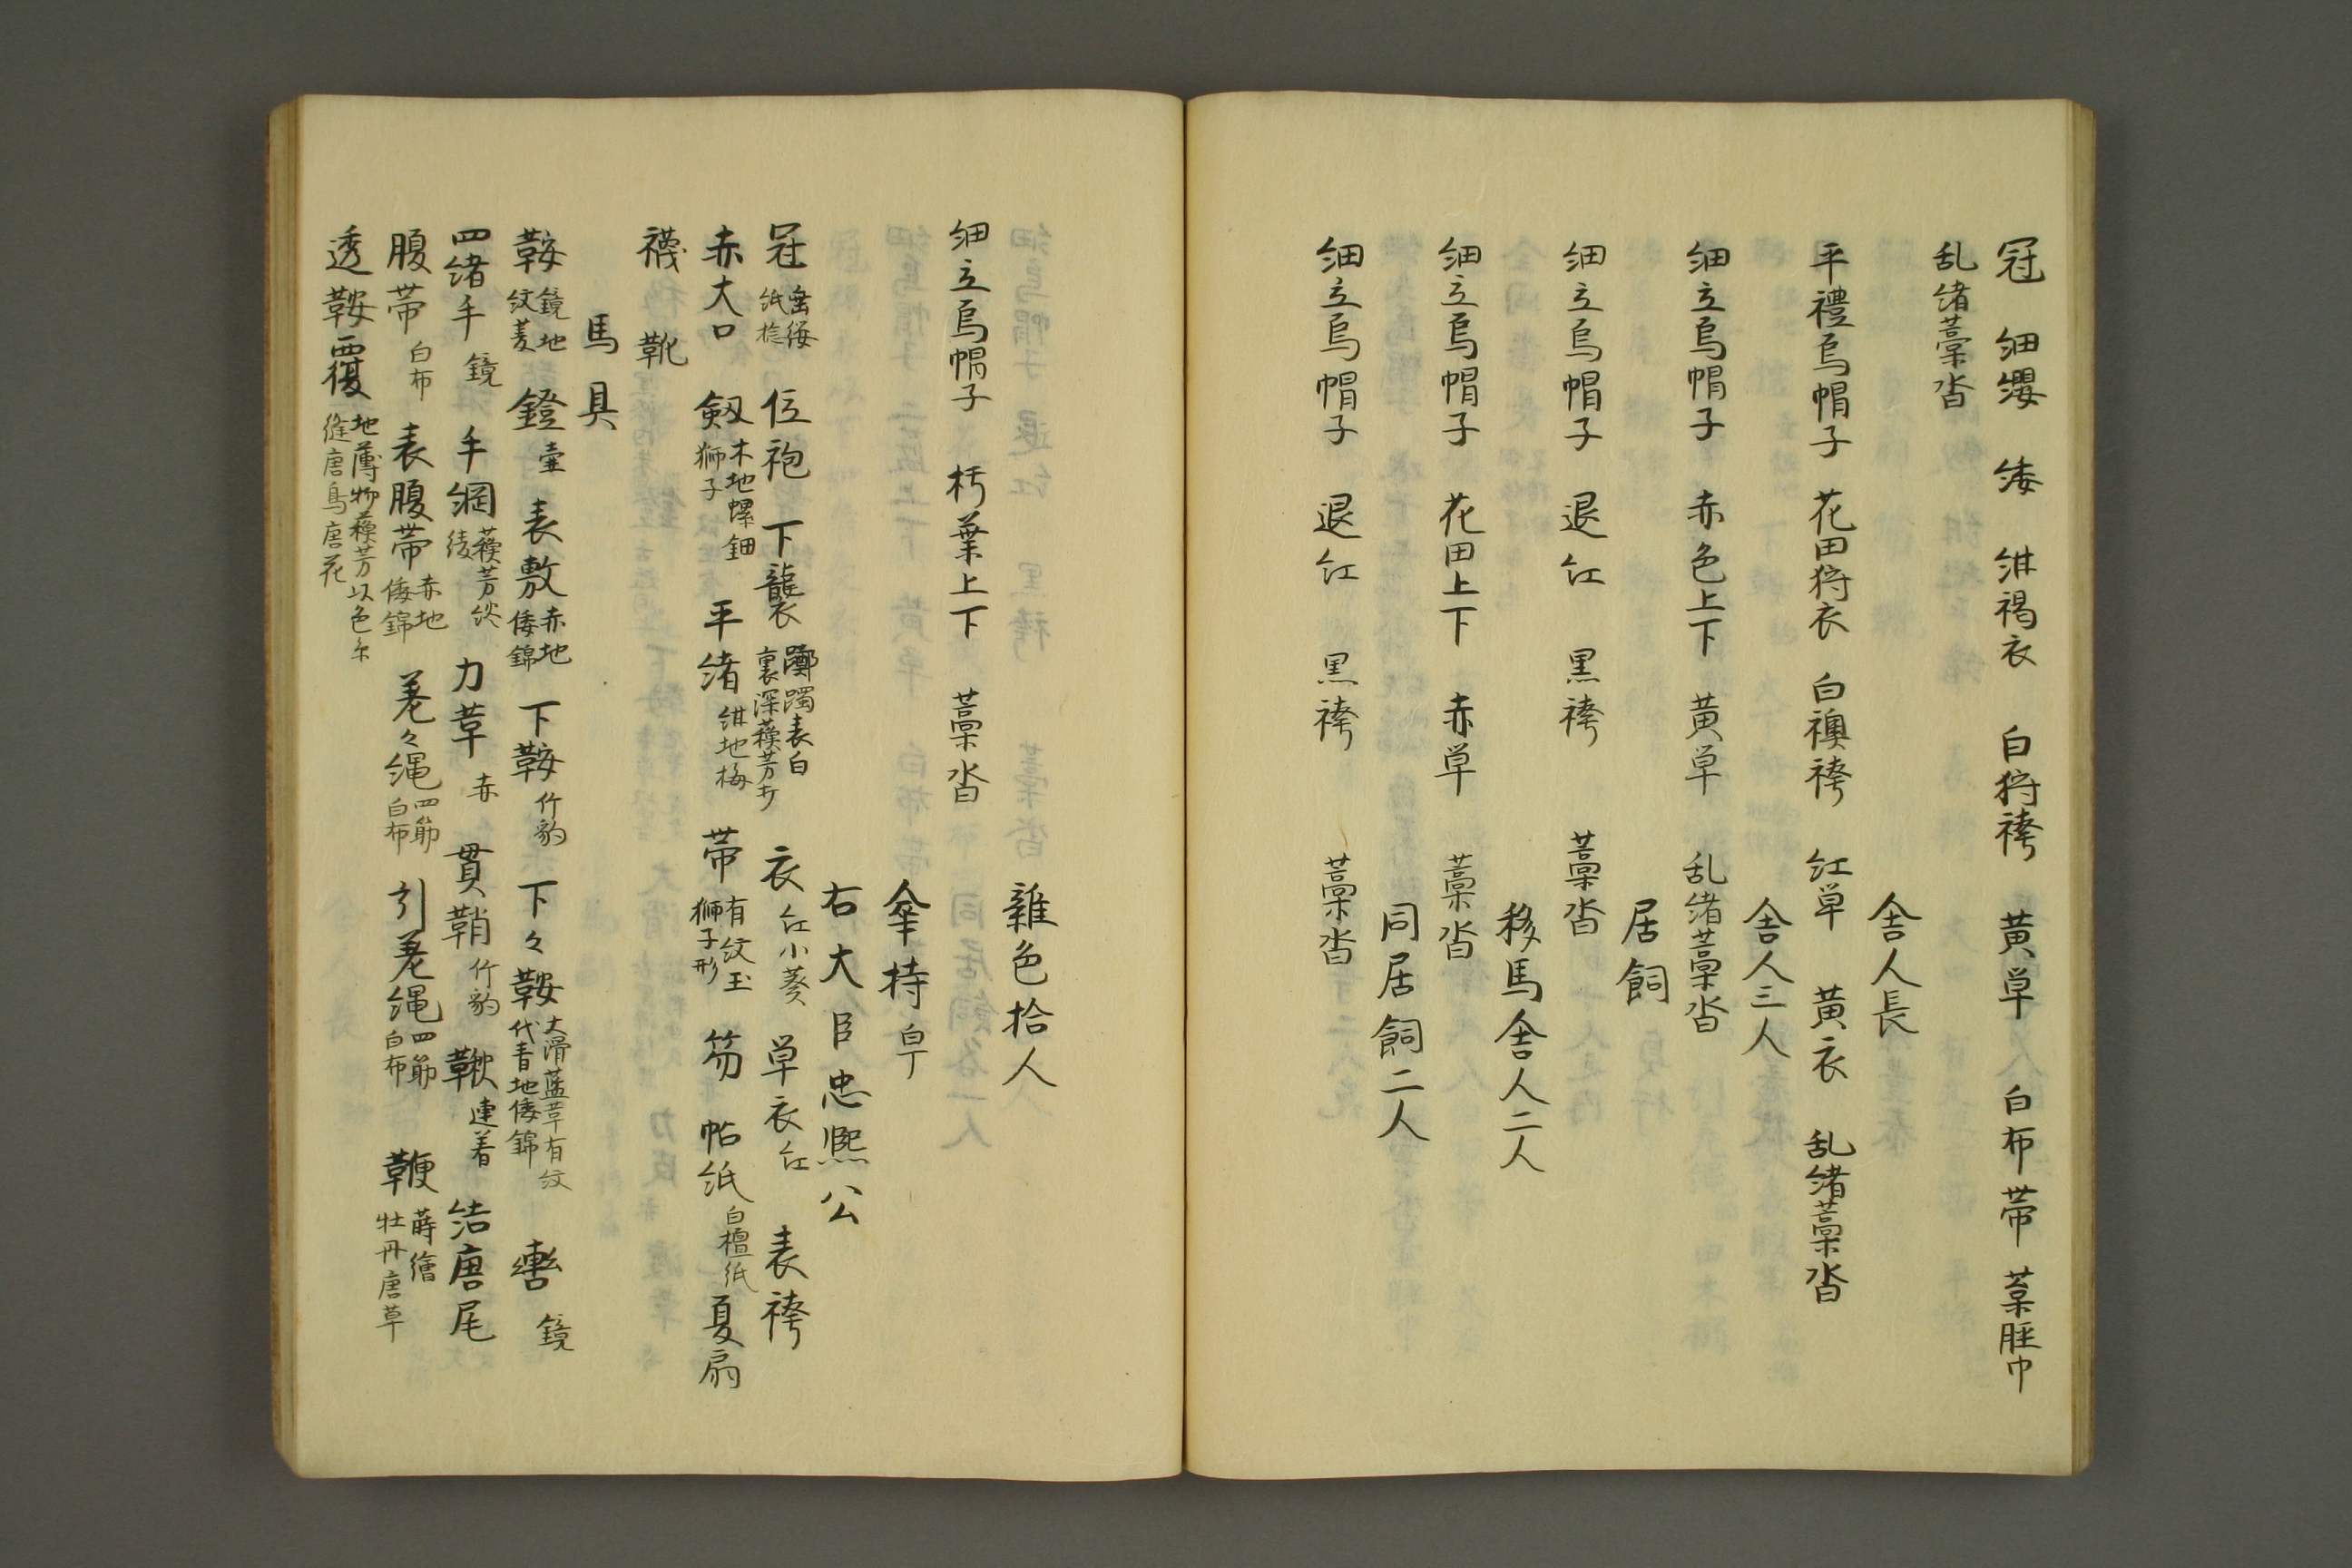 冠 細纓 緌 紺褐衣 白狩袴 黄単 白布帯 葉脛巾
乱緒藁沓
舎人長
平禮烏帽子 花田狩衣 白襖袴 紅単 黄衣 乱緒藁沓
舎人三人
細立烏帽子 赤色上下 黄単 乱緒藁沓
居飼
細立烏帽子 退紅 黒袴 藁沓
移馬舎人二人
細立烏帽子 花田上下 赤単 藁沓
同居飼二人
細立烏帽子 退紅 黒袴 藁沓
雜色拾人
細立烏帽子 朽葉上下 藁沓
傘持 白丁
右大臣忠熙公
冠 垂纓 紙捻 位袍 下襲 躑躅表白 裏深蘓芳 衣 紅小葵 単衣 紅 表袴
赤大口 劔 木地螺鈿 獅子 平緒 紺地梅 帯 有紋玉 獅子形 笏 帖紙 白檀紙 夏扇
襪 靴
馬具
鞍 鏡地 紋菱 鐙 壷 表敷 赤地 倭錦 下鞍 竹豹 下々鞍 大滑藍革有紋 代青地倭錦 轡 鏡
四緒手 鏡 手綱 蘓芳淡 綾 力革 赤 貫鞘 竹豹 鞦 連着 結唐尾
腹帯 白布 表腹帯 赤地 倭錦 差々縄 四筋 白布 引差縄 四筋 白布 鞭 蒔繪 牡丹唐草
透鞍覆 地薄物蘓芳以色糸 縫唐鳥唐花